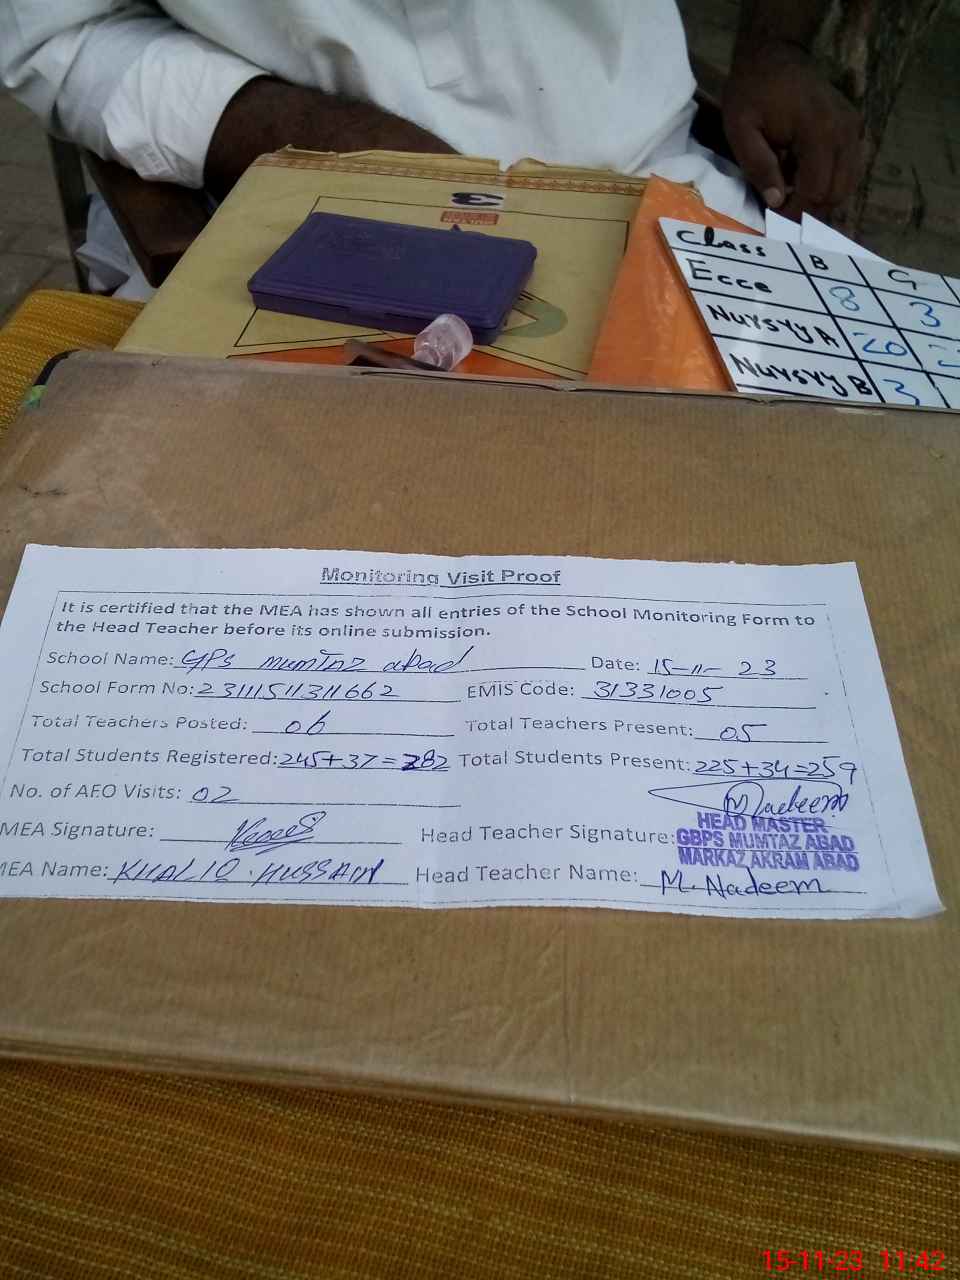 3
Class B G
Ecce 8 3
Nursyy A 20
Nursyy B 3
Monitoring Visit Proof
It is certified that the MEA has shown all entries of the School Monitoring Form to
the Head Teacher before its online submission.
School Name: GPS Mumtaz abad Date: 15-11-23
School Form No: 23111511311662 EMIS Code: 31331005
Total Teachers Posted: 06 Total Teachers Present: 05
Total Students Registered: 245+37=282 Total Students Present: 225+34=259
No. of AEO Visits: 02
M Nadeem
MEA Signature: Head Teacher Signature:
HEAD MASTER
GBPS MUMTAZ ABAD
MARKAZ AKRAM ABAD
MEA Name: KHALIQ HUSSAIN Head Teacher Name: M. Nadeem
15-11-23 11:42